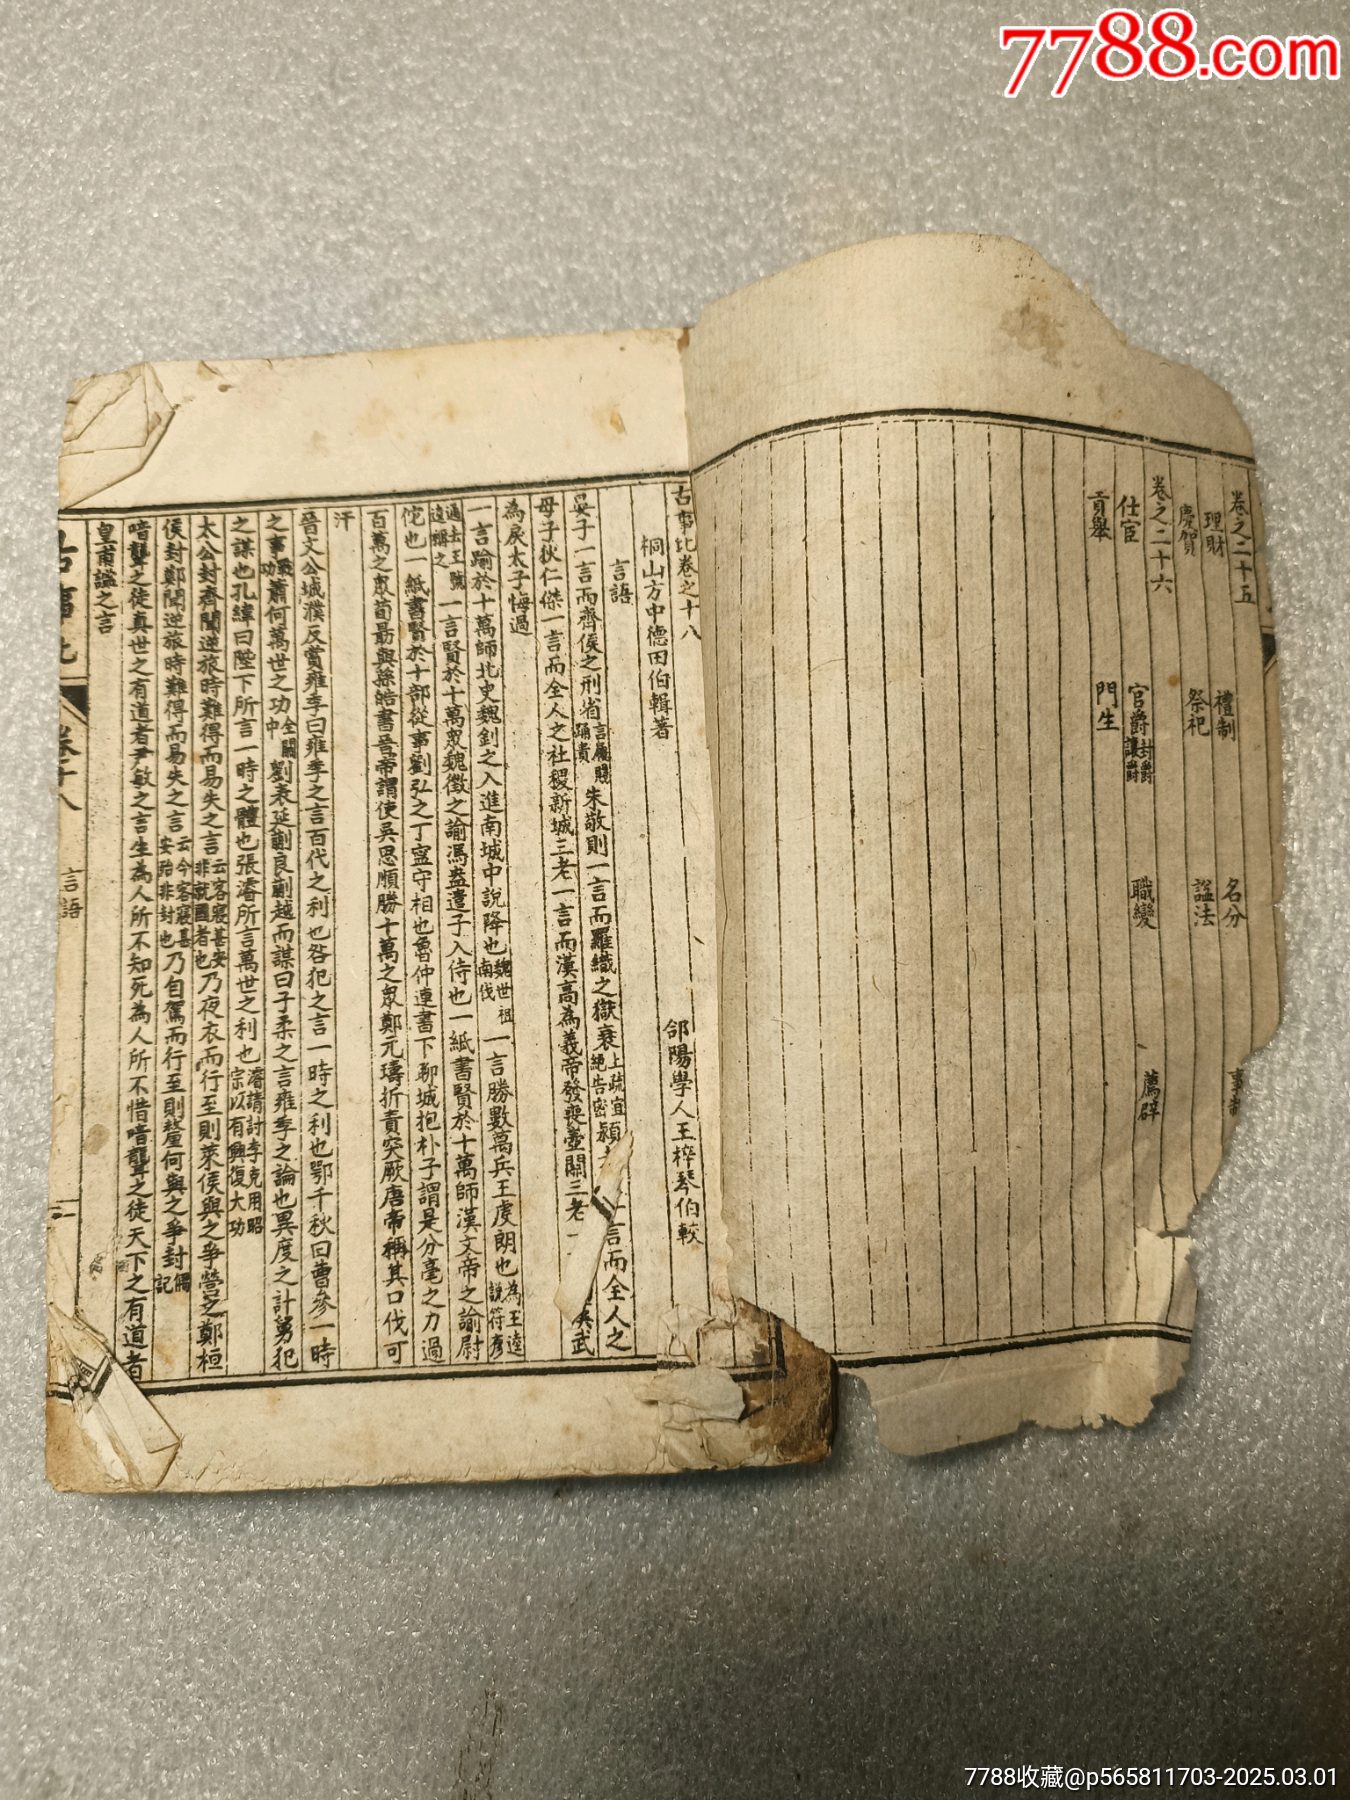 7788.com
卷之二十五
理財 禮制 名分 事制
慶賀 祭祀 謚法
卷之二十六
仕宦 官爵 封爵 讓爵 職變 薦辟
貢舉 門生
古事比卷之十八
桐山方中德田伯輯著 郃陽學人王梓琴伯較
言語
晏子一言而齊侯之刑省 言屨賤踊貴 朱敬則一言而羅織之獄衰 上疏宜絕告密 潁 一言而全人之
母子狄仁傑一言而全人之社稷新城三老一言而漢高為義帝發喪壼關三老一 漢武
為戾太子悔過
一言踰於十萬師北史魏釗之入進南城中說降也 魏世祖南伐 一言勝數萬兵王虔朗也 為王逵說符彥
通去王號遠稱之 一言賢於十萬眾魏徵之諭馮盎遣子入侍也一紙書賢於十萬師漢文帝之諭尉
佗也一紙書賢於十部從事劉弘之丁寍守相也魯仲連書下聊城抱朴子謂是分毫之力過
百萬之眾荀勗與孫皓書晉帝謂使吳思順勝十萬之眾鄭元璹折責突厥唐帝稱其口伐可
汗
晉文公城濮反賞雍季曰雍季之言百代之利也咎犯之言一時之利也鄂千秋曰曹參一時
之事 戰功 蕭何萬世之功 全關中 劉表延蒯良蒯越而謀曰子柔之言雍季之論也異度之計舅犯
之謀也孔緯曰陛下所言一時之體也張濬所言萬世之利也 濬請討李克用昭宗以有興復大功
太公封齊聞逆旅時難得而易失之言 云客寢甚安非就國者也 乃夜衣而行至則萊侯與之爭營之鄭桓
侯封鄭聞逆旅時難得而易失之言 云今客寢甚安殆非封也 乃自駕而行至則釐何與之爭封 觽記
喑聾之徒真世之有道者尹敏之言生為人所不知死為人所不惜喑聾之徒天下之有道者
皇甫謐之言
古事比 卷十八 言語 一
7788收藏@p565811703-2025.03.01